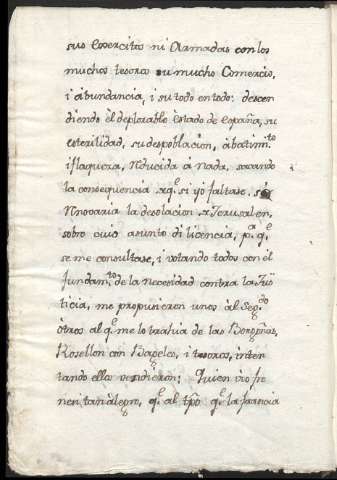 sus Exercitos ni Armadas con los
muchos tesoros su mucho Comercio,
i abundancia, i su todo en todo: descen
diendo al deplorable Estado de España, su
esterilidad, su despoblacion, abatimto
i flaqueza, reducida á nada, sacando
la consequencia xq.e si yo faltase. se
Nnovaria la desolacion xJerusalen,
sobre cuio asunto di licencia, pa. q.e
se me consultase, i votando todos con el
fundamto. de la necesidad contra la Jus
ticia, me propusieron unos al Segdo
otros al q.e me lo trahia de las
Rosellon con Bageles, i tesoros, inten
tando ellos Quien vio
tan alegre, q.e al tpo q.e la francia